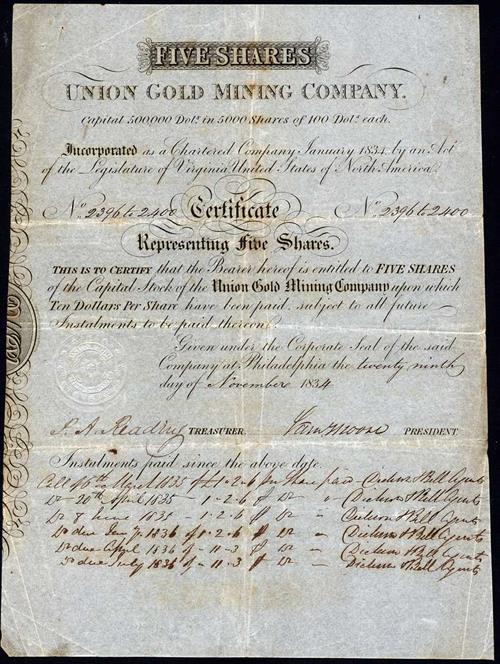 FIVE SHARES
UNION GOLD MINING COMPANY.
Capital 500,000 Dols. in 5000 Shares of 100 Dols. each.
Incorporated as a Chartered Company January 1834 by an Act
of the Legislature of Virginia United States of North America.
No. 2396 to 2400 Certificate No. 2396 to 2400
Representing Five Shares.
THIS IS TO CERTIFY that the Bearer hereof is entitled to FIVE SHARES
of the Capital Stock of the Union Gold Mining Company upon which
Ten Dollars Per Share have been paid, subject to all future
Instalments to be paid thereon.
Given under the Corporate Seal of the said
Company at Philadelphia the twenty ninth
day of November 1834
P. A. Reading TREASURER. PRESIDENT.
Instalments paid since the above date.
Call of 16th March 1835 1-2-6 per share paid Dickson & Bell Agents
Do 20th April 1835 - 1-2-6 Do Dickson & Bell Agents
Do 8 June 1835 - 1-2-6 Do Dickson & Bell Agents
Do due Jany 1836 of 1-2-6 Do Dickson & Bell Agents
Do due April 1836 of - 11-3 Do Dickson & Bell Agents
Do due July 1836 of - 11-3 Do Dickson & Bell Agents